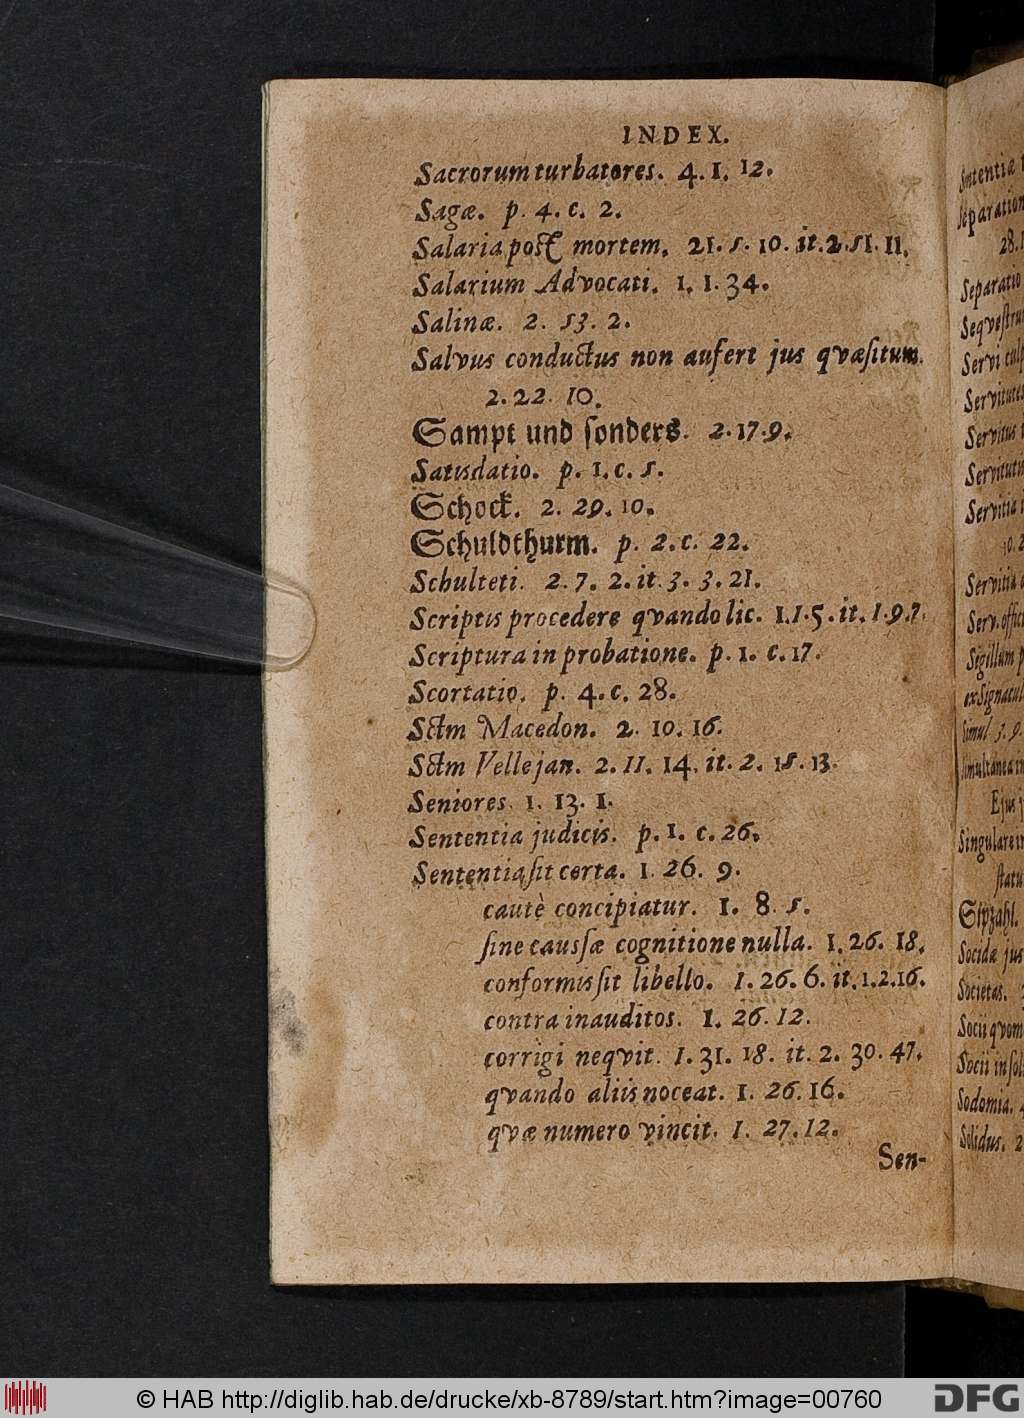 INDEX.
Sacrorum turbatores. 4. 1. 12.
Sagæ. p. 4. c. 2.
Salaria post mortem. 21. 5. 10. it. 2. 51. 11.
Salarium Advocati. 1. 1. 34.
Salinæ. 2. 53. 2.
Salvus conductus non aufert jus qvæſitum.
2. 22. 10.
Sampt und ſonders. 2. 17. 9.
Satisdatio. p. 1. c. 5.
Schock. 2. 29. 10.
Schuldthurm. p. 2. c. 22.
Schulteti. 2. 7. 2. it. 3. 3. 21.
Scriptis procedere qvando lic. 1. 1. 5. it. 1. 9. 7.
Scriptura in probatione. p. 1. c. 17.
Scortatio. p. 4. c. 28.
Sctm Macedon. 2. 10. 16.
Sctm Vellejan. 2. 11. 14. it. 2. 15. 13.
Seniores. 1. 13. 1.
Sententia judicis. p. 1. c. 26.
Sententia ſit certa. 1. 26. 9.
cautè concipiatur. 1. 8. 5.
ſine cauſsæ cognitione nulla. 1. 26. 18.
conformis ſit libello. 1. 26. 6. it. 1. 2. 16.
contra inauditos. 1. 26. 12.
corrigi neqvit. 1. 31. 18. it. 2. 30. 47.
qvando aliis noceat. 1. 26. 16.
qvæ numero vincit. 1. 27. 12.
Sen-
Separatio
Servi
Servitus
Servitia
10. 2
Servitia
Serv. offic
Sigillum p
Ejus j
ſtatu
Socidæ jus
Societas.
Socii
Socii in
Sodomia.
Solidus. 2
© HAB http://diglib.hab.de/drucke/xb-8789/start.htm?image=00760
DFG